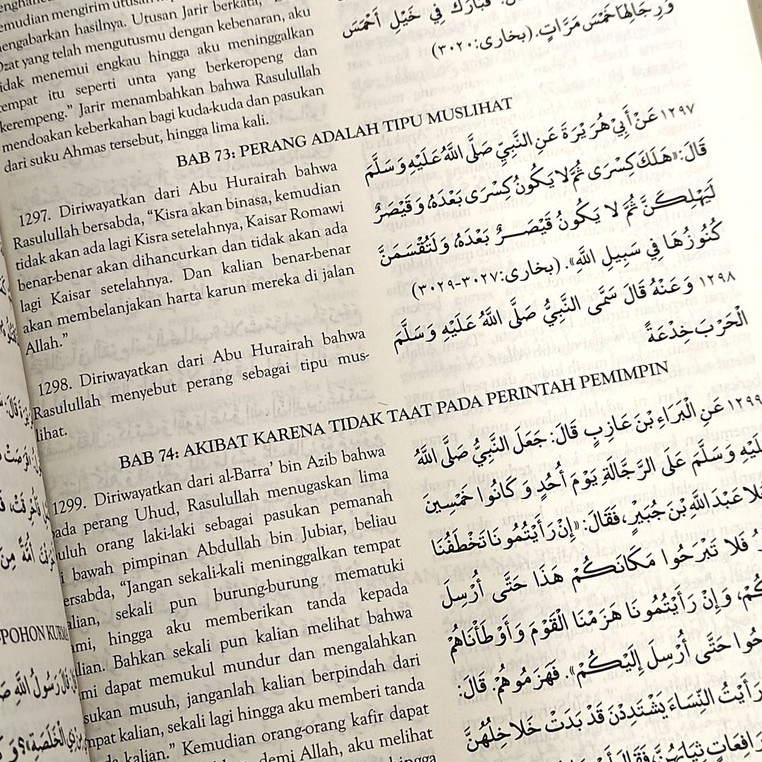 emudian mengirim utusan
mengabarkan hasilnya. Utusan Jarir berkata,
Dzat yang telah mengutusmu dengan kebenaran, aku
tidak menemui engkau hingga aku meninggalkan
tempat itu seperti unta yang berkeropeng dan
kerempeng.” Jarir menambahkan bahwa Rasulullah
mendoakan keberkahan bagi kuda-kuda dan pasukan
dari suku Ahmas tersebut, hingga lima kali.
فَبَارَكَ فِي خَيْلِ أَحْمَسَ
وَرِجَالِهَا خَمْسَ مَرَّاتٍ. (بخارى: ٣٠٢٠)
BAB 73: PERANG ADALAH TIPU MUSLIHAT
1297. Diriwayatkan dari Abu Hurairah bahwa
Rasulullah bersabda, “Kisra akan binasa, kemudian
tidak akan ada lagi Kisra setelahnya, Kaisar Romawi
benar-benar akan dihancurkan dan tidak akan ada
lagi Kaisar setelahnya. Dan kalian benar-benar
akan membelanjakan harta karun mereka di jalan
Allah.”
١٢٩٧ عَنْ أَبِي هُرَيْرَةَ عَنِ النَّبِيِّ صَلَّى اللَّهُ عَلَيْهِ وَسَلَّمَ
قَالَ: «هَلَكَ كِسْرَى ثُمَّ لَا يَكُونُ كِسْرَى بَعْدَهُ وَقَيْصَرُ
لَيَهْلِكَنَّ ثُمَّ لَا يَكُونُ قَيْصَرُ بَعْدَهُ وَلَتُقْسَمَنَّ
كُنُوزُهَا فِي سَبِيلِ اللَّهِ». (بخارى: ٣٠٢٧-٣٠٢٩)
1298. Diriwayatkan dari Abu Hurairah bahwa
Rasulullah menyebut perang sebagai tipu mus-
lihat.
١٢٩٨ وَعَنْهُ قَالَ سَمَّى النَّبِيُّ صَلَّى اللَّهُ عَلَيْهِ وَسَلَّمَ
الْحَرْبَ خِدْعَةً
BAB 74: AKIBAT KARENA TIDAK TAAT PADA PERINTAH PEMIMPIN
1299. Diriwayatkan dari al-Barra’ bin Azib bahwa
pada perang Uhud, Rasulullah menugaskan lima
puluh orang laki-laki sebagai pasukan pemanah
di bawah pimpinan Abdullah bin Jubiar, beliau
bersabda, “Jangan sekali-kali meninggalkan tempat
kalian, sekali pun burung-burung mematuki
kami, hingga aku memberikan tanda kepada
kalian. Bahkan sekali pun kalian melihat bahwa
kami dapat memukul mundur dan mengalahkan
pasukan musuh, janganlah kalian berpindah dari
tempat kalian, sekali lagi hingga aku memberi tanda
kalian.” Kemudian orang-orang kafir dapat
demi Allah, aku melihat
hingga
١٢٩٩ عَنِ الْبَرَاءِ بْنِ عَازِبٍ قَالَ: جَعَلَ النَّبِيُّ صَلَّى اللَّهُ
عَلَيْهِ وَسَلَّمَ عَلَى الرَّجَّالَةِ يَوْمَ أُحُدٍ وَكَانُوا خَمْسِينَ
عَبْدَ اللَّهِ بْنَ جُبَيْرٍ، فَقَالَ: «إِنْ رَأَيْتُمُونَا تَخْطَفُنَا
فَلَا تَبْرَحُوا مَكَانَكُمْ هَذَا حَتَّى أُرْسِلَ
وَإِنْ رَأَيْتُمُونَا هَزَمْنَا الْقَوْمَ وَأَوْطَأْنَاهُمْ
حَتَّى أُرْسِلَ إِلَيْكُمْ». فَهَزَمُوهُمْ. قَالَ:
رَأَيْتُ النِّسَاءَ يَشْتَدِدْنَ قَدْ بَدَتْ خَلَاخِلُهُنَّ
رَافِعَاتٍ ثِيَابَهُنَّ، فَقَالَ
POHON KURMA
قَالَ رَسُولُ اللَّهِ